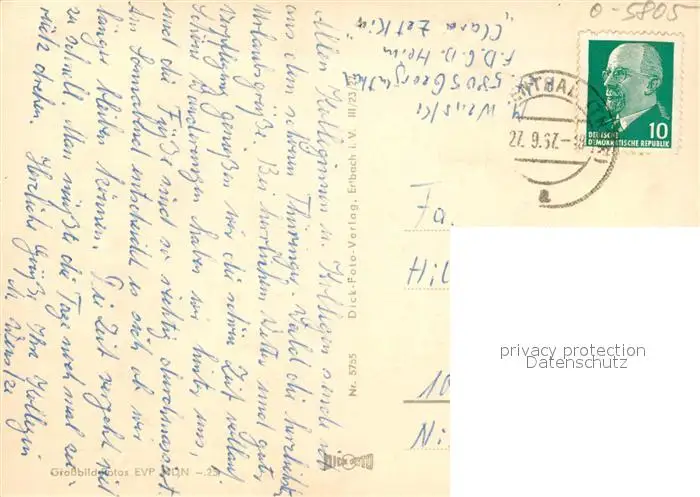 0-5805
M. Wenske
5805 Georgenthal
F.D.G.B. Heim
"Clara Zetkin"
DEUTSCHE
DEMOKRATISCHE REPUBLIK
10
27. 9. 67.-18
a
Allen Kolleginnen u. Kollegen sende ich
aus dem schönen Thüringer-Wald die herzlichsten
Urlaubsgrüße. Bei herrlichem Wetter und guter
Verpflegung genießen wir die schöne Zeit vollauf.
Schöne Wanderungen haben wir hinter uns,
und die Füße sind so richtig durchmassiert.
Am Sonnabend entscheidet es sich ob wir
länger bleiben können. Die Zeit vergeht viel
zu schnell. Man müßte die Tage noch mal zu-
rück drehen. Herzliche Grüße Ihre Kollegin
M. Wenske
Nr. 5755 Dick-Foto-Verlag, Erlbach i. V. III/23/
DICK FOTO
Großbildfotos EVP MDN -.25
Fa.
Hil
10
Ni
privacy protection
Datenschutz